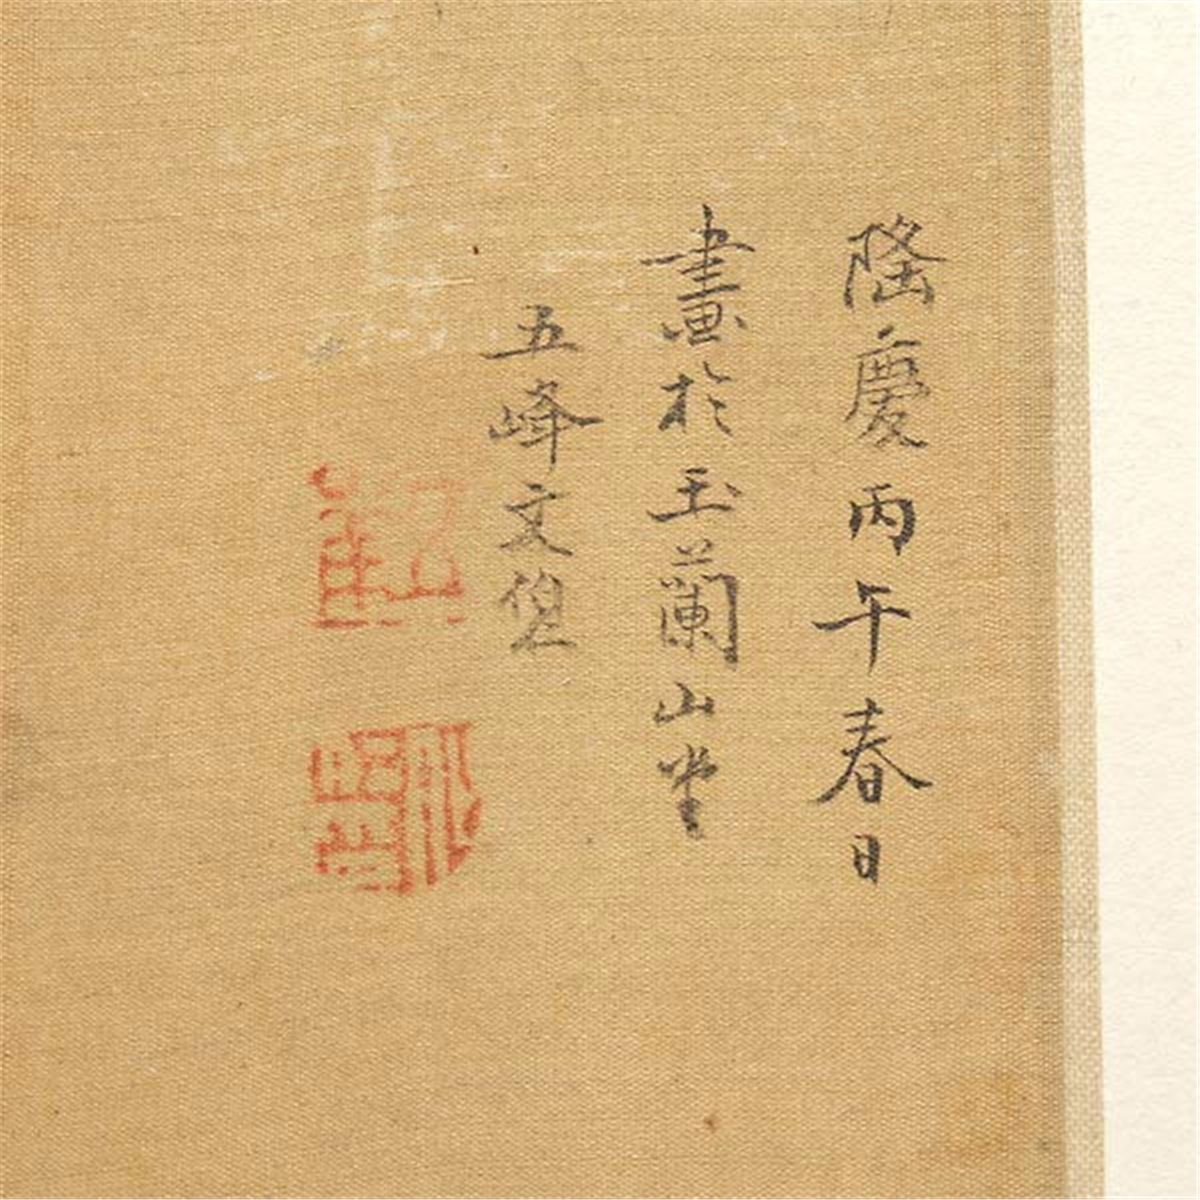 隆慶丙午春日
畫於玉蘭山堂
五峰文伯仁